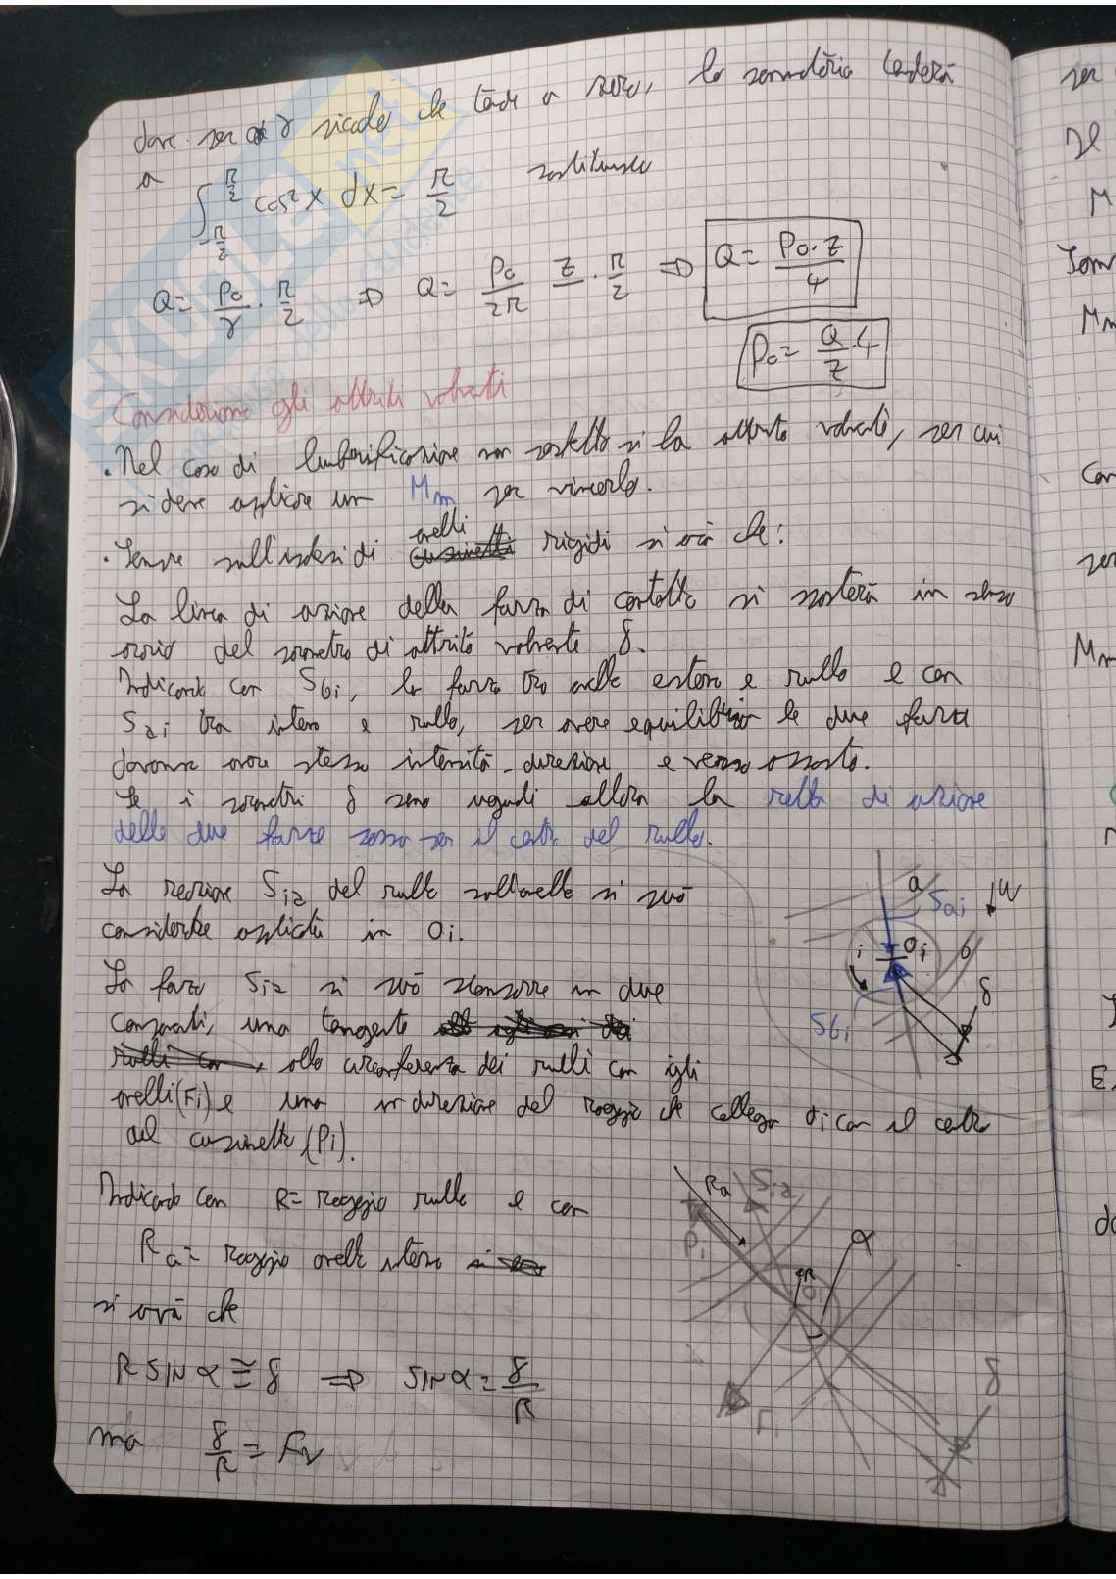 dove per γ piccolo che tende a zero, la sommatoria tenderà
a ∫_{-π/2}^{π/2} cos² x dx = π/2 sostituendo
Q = P₀/γ · π/2 ⇒ Q = P₀/2π z · π/2 ⇒ Q = P₀·z/4
P₀ = Q/z · 4
Consideriamo gli attriti volventi
• Nel caso di lubrificazione non perfetta si ha attrito volvente, per cui
si deve applicare un Mm per vincerlo.
• Sempre sull'ipotesi di anelli rigidi si avrà che:
La linea di azione della forza di contatto si sposterà in senso
orario del parametro di attrito volvente δ.
Indicando con Sbi, la forza tra anello esterno e rullo e con
Sai tra interno e rullo, per avere equilibrio le due forze
dovranno avere stessa intensità, direzione e verso opposto.
Se i parametri δ sono uguali allora la retta di azione
delle due forze passa per il centro del rullo.
La reazione Sia del rullo sull'anello si può
considerare applicata in Oi.
La forza Sia si può scomporre in due
componenti, una tangente
alla circonferenza dei rulli con gli
anelli (Fi) e una in direzione del raggio che collega Oi con il centro
del cuscinetto (Pi).
a
Sai
W
i
Oi
b
δ
Sbi
Indicando con R = raggio rullo e con
Ra = raggio anello interno
si avrà che
R SIN α ≅ δ ⇒ SIN α = δ/R
ma δ/R = Fv
Ra
Sia
Pi
α
R
Oi
δ
Fi